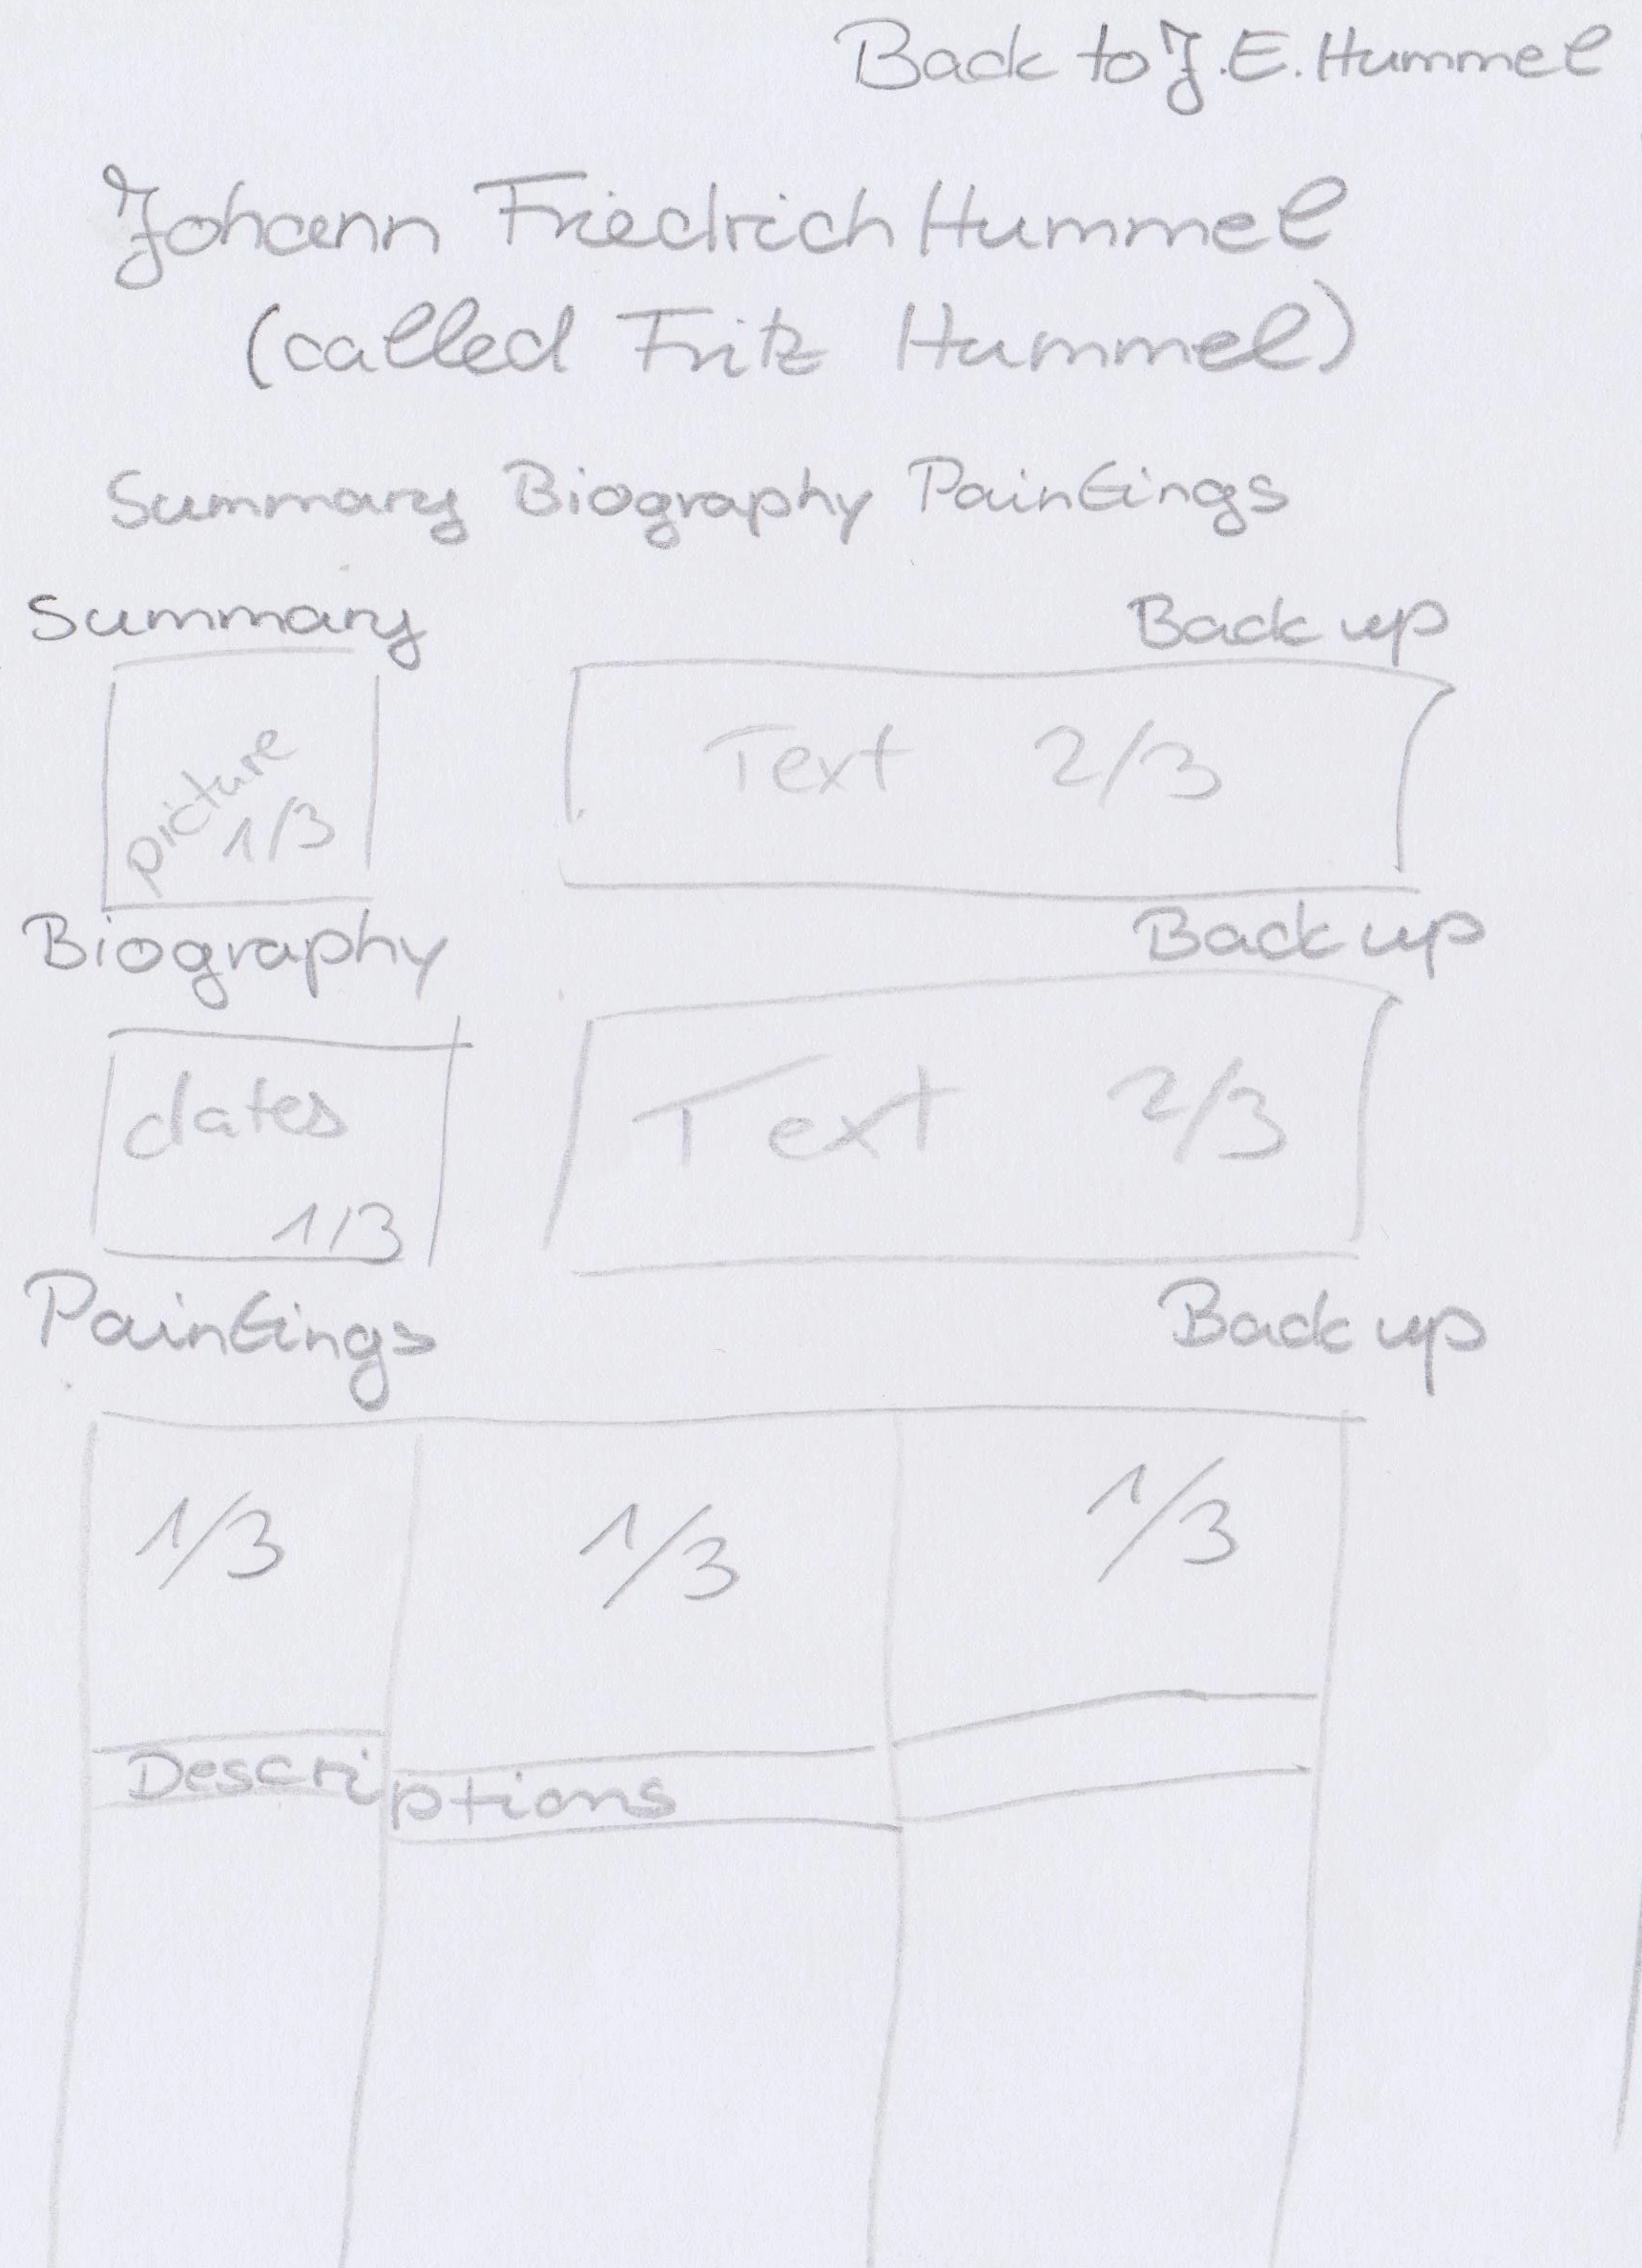 Back to J.E. Hummel
Johann Friedrich Hummel
(called Fritz Hummel)
Summary Biography Paintings
Summary Back up
picture
1/3
Text 2/3
Biography Back up
dates
1/3
Text 2/3
Paintings Back up
1/3 1/3 1/3
Descriptions